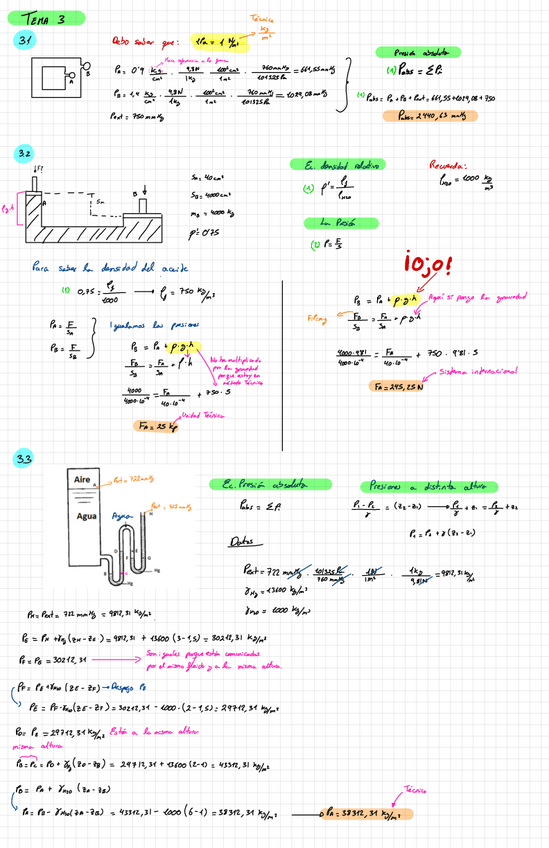 TEMA 3
3.1
Debo saber que: 1Pa = 1 N/m²
Técnico
kg/m²
B
A
Para referencia a la goma
PA = 0'9 kg/cm² · 9,8N/1kg · 100²cm²/1m² · 760mmHg/101325Pa = 661,55 mmHg
PB = 1,4 kg/cm² · 9,8N/1kg · 100²cm²/1m² · 760mmHg/101325Pa = 1029,08 mmHg
Pext = 750 mmHg
Presión absoluta
(1) Pabs = ΣPi
(1) Pabs = PA + PB + Pext = 661,55 + 1029,08 + 750
Pabs = 2440,63 mmHg
3.2
A
5m
B
ρg·h
SA = 40 cm²
SB = 4000 cm²
mB = 4000 kg
ρ' = 0'75
Ec. densidad relativa
(1) ρ' = ρf/ρH2O
Recuerda:
ρH2O = 1000 kg/m³
La Presión
(2) P = F/S
Para saber la densidad del aceite
(1) 0,75 = ρf/1000 → ρf = 750 kg/m³
PA = F/SA
PB = F/SB
Igualamos las presiones
PB = PA + ρ·g·h
FB/SB = FA/SA + ρ·h
No ha multiplicado
por la gravedad
porque estoy en
método Técnico
4000/4000·10⁻⁴ = FA/40·10⁻⁴ + 750·5
Unidad Técnica
FA = 25 kp
¡Ojo!
PB = PA + ρ·g·h
Aquí si pongo la gravedad
F = m·g
FB/SB = FA/SA + ρ·g·h
4000·9'81/4000·10⁻⁴ = FA/40·10⁻⁴ + 750·9'81·5
Sistema internacional
FA = 245,25 N
3.3
Aire
A
Pext = 722 mmHg
Agua
Agua
H
B
C
D
E
F
G
Hg
Hg
Ec. Presión absoluta
Pabs = ΣPi
Presiones a distinta altura
P1 - P2/γ = (z2 - z1) → P1/γ + z1 = P2/γ + z2
P1 = P2 + γ(z2 - z1)
Datos
Pext = 722 mmHg · 101325Pa/760mmHg · 1N/1m² · 1kg/9,81N = 9812,31 kg/m²
γHg = 13600 kg/m³
γH2O = 1000 kg/m³
PH = Pext = 722 mmHg = 9812,31 kg/m²
PG = PH + γHg(zH - zG) = 9812,31 + 13600 (3 - 1,5) = 30212,31 kg/m²
PF = PG = 30212,31 → Son iguales porque están comunicados
por el mismo fluido y a la misma altura.
PF = PE + γH2O (zE - zF) → Despejo PE
PE = PF - γH2O(zE - zF) = 30212,31 - 1000 · (2 - 1,5) = 29712,31 kg/m²
PD = PE = 29712,31 kg/m² Están a la misma altura
misma altura
PB = PC = PD + γHg(zD - zB) = 29712,31 + 13600 (2-1) = 43312,31 kg/m²
PB = PA + γH2O (zA - zB)
PA = PB - γH2O(zA - zB) = 43312,31 - 1000 (6-1) = 38312,31 kg/m² → PA = 38312,31 kg/m²
Técnico